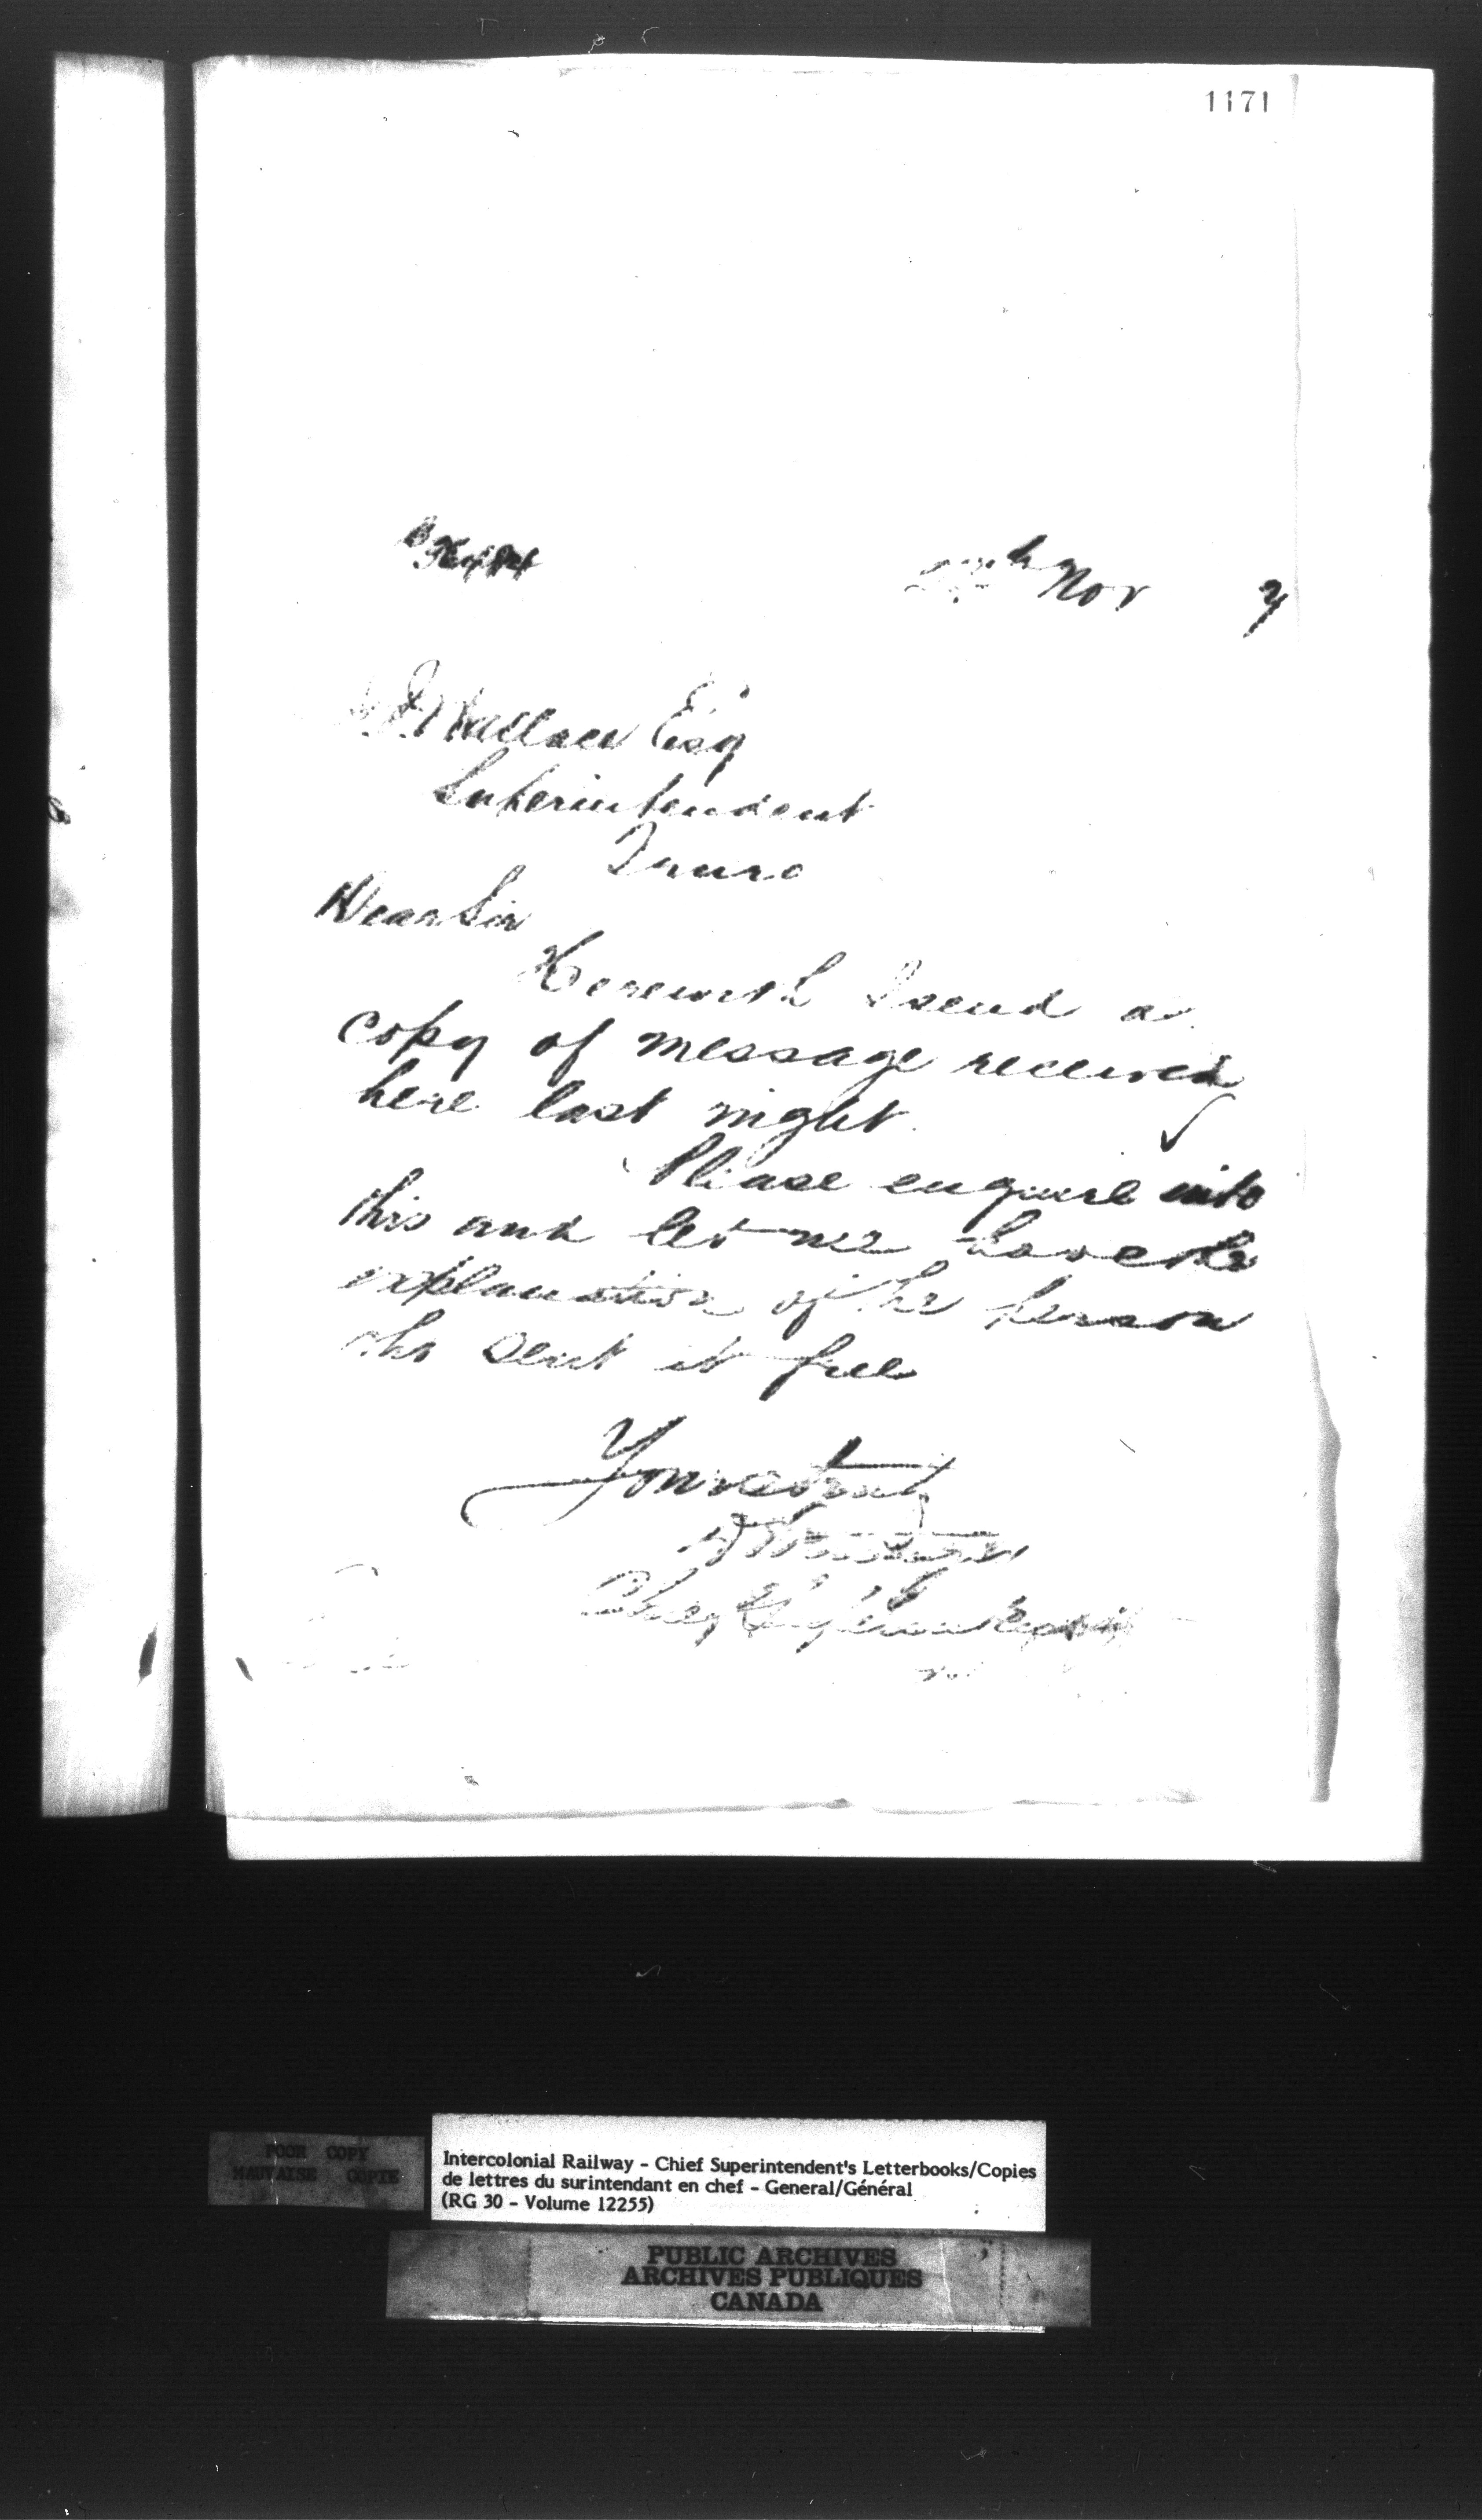 1171
Nov 7
Wallace Esq
Superintendent
Truro
Dear Sir
Herewith I send a
copy of message received
here last night.
Please enquire into
this and let me have the
explanation of the person
who sent it free
Yours truly
POOR COPY
MAUVAISE COPIE
Intercolonial Railway - Chief Superintendent's Letterbooks/Copies
de lettres du surintendant en chef - General/Général
(RG 30 - Volume 12255)
PUBLIC ARCHIVES
ARCHIVES PUBLIQUES
CANADA